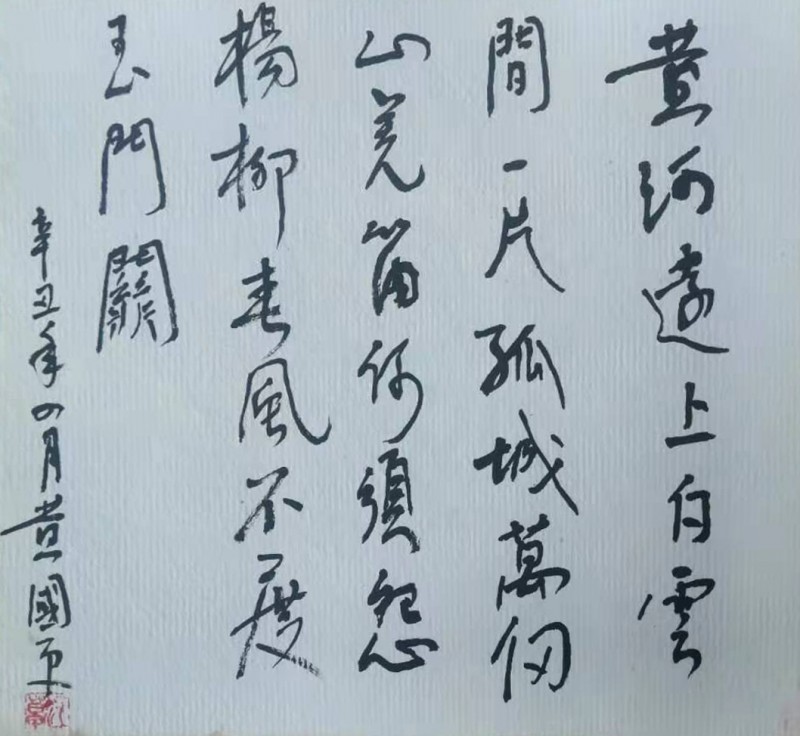 黄河遠上白雲
間一片孤城萬仞
山羌笛何須怨
楊柳春風不度
玉門關
辛丑年四月黄國